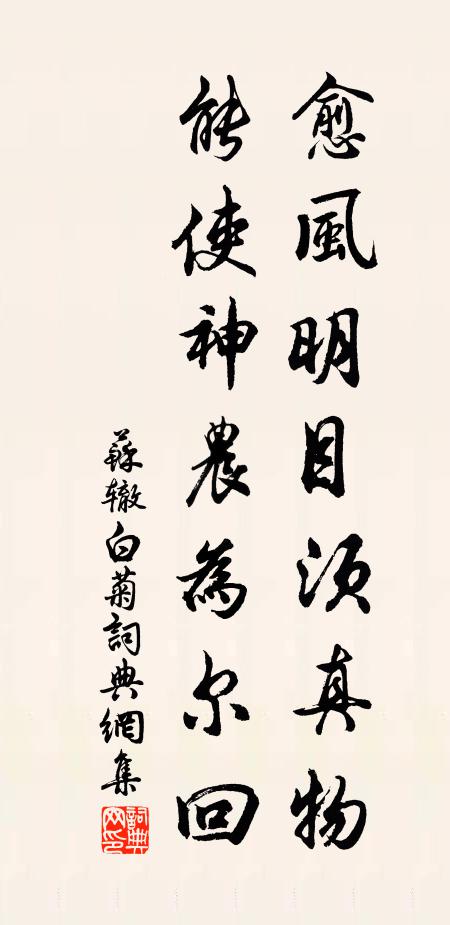 愈風明目須真物
能使神農為尔回
蘇辙白菊詞典網集
詞典网印